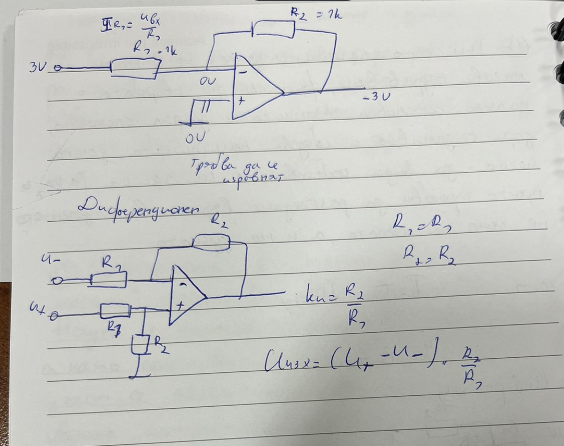 I R₁ = Uвх / R₁
R₁ = 1k
R₂ = 1k
3V
0V
-
+
-3V
0V
трябва да се
изровнят
Диференциален
R₂
U-
R₁
-
R₁ = R₁
R₂ = R₂
U+
R₁
+
R₂
ku = R₂ / R₁
Uизх = (U+ - U-) . R₂ / R₁